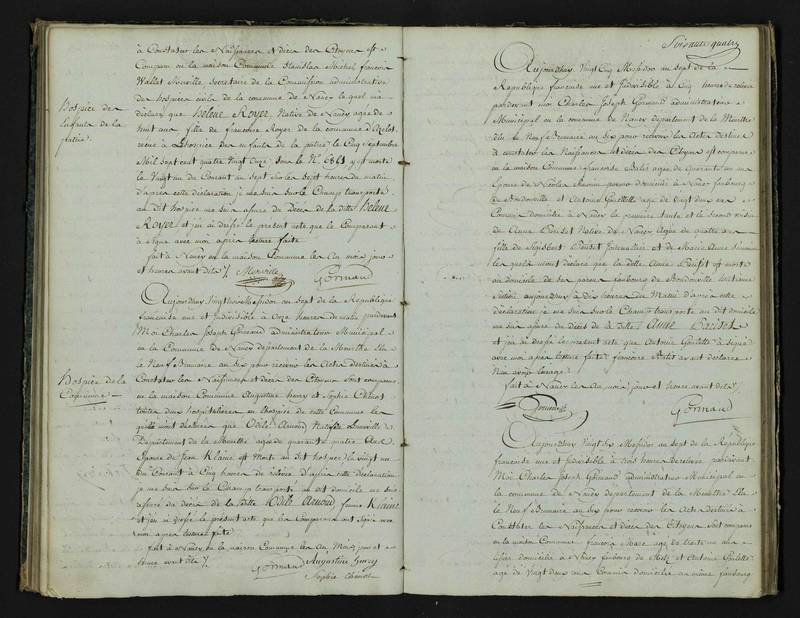 à Constater les Naissances et décès des Citoyens est
Comparu en la maison Commune Stanislas Michel françois
Wallet secretaire de la Commission administrative
des hospices civils de la commune de Nancy lequel m'a
déclaré que Helene Royer Native de Nancy agée de
huit ans fille de françoise Royer de la commune
reçue à l'hospice des enfants de la patrie le Cinq Septembre
Mil Sept cent quatre Vingt Onze sous le No. 6861 y est morte
le Vingt un du Courant au sept sur les Sept heures du matin
d'après cette déclaration je me suis sur le Champ transporté
au dit hospice me suis assuré du Décès de la ditte Helene
Royer et j'en ai dressé le présent acte que le Comparant
a signé avec moi après lecture faite
fait à Nancy en la maison Commune les An mois jour
et heures avant dits /.
Gormand
Hospice des
Enfants de la
patrie
Aujourdhuy Vingt Messidor an sept de la République
française une et Indivisible à Onze heures du matin pardevant
Moi Charles Joseph Gormand administrateur Municipal
en la Commune de Nancy département de la Meurthe élu
le Neuf Brumaire an Six pour recevoir les Actes destinés à
Constater les Naissances et décès des Citoyens sont comparus
en la maison Commune Augustine henry et Sophie Chenot
toutes deux hospitalieres en l'hospice de cette Commune les
quelles m'ont déclaré que Odile Arnould Native de Luneville
Département de la Meurthe agée de quarante quatre Ans
Epouse de Jean Klaine est Morte au dit hospice le vingt un
du Courant à Cinq heures de relevée d'après cette déclaration
je me suis sur le Champ transporté au dit domicile me suis
assuré du décès de la ditte Odile Arnoud femme Klaine
et j'en ai dressé le présent acte que les Comparantes ont signé avec
moi après lecture faite
fait à Nancy en la maison Commune les An Mois jour et
heures avant dits /.
Gormand Augustine henry
Sophie Chenot
Hospice de la
Commune
Soixante quatre
Aujourdhuy Vingt Cinq Messidor an sept de la
République française une et Indivisible à Cinq heures de relevée
pardevant moi Charles Joseph Gormand administrateur
Municipal en la commune de Nancy département de la Meurthe
élu le Neuf Brumaire an six pour recevoir les Actes destinés
à constater les Naissances et décès des Citoyens est comparue
en la maison Commune françoise Balet agée de quarante un ans
Epouse de Nicolas domicilié à Nancy faubourg
de Boudonville et Antoine Goulette agé de Vingt deux ans
Commis domicilié à Nancy la première tante et le second voisin
de Anne Poirsot Native de Nancy Agée de quatre ans
fille de Sigisbert Poirsot Journallier et de Marie Anne
les quels m'ont déclaré que la ditte Anne Poirsot est morte
au domicile de ses parens faubourg de Boudonville huitieme
Section aujourdhuy à dix heures du Matin d'après cette
déclaration je me suis sur le Champ transporté au dit domicile
me suis assuré du décès de la ditte Anne Poirsot
et j'en ai dressé le présent acte que Antoine Goulette a signé
avec moi après lecture faite françoise Balet ayant déclaré
N'en avoir l'usage
fait à Nancy les An mois jour et heure avant dits /.
Gormand
Aujourdhuy Vingt six Messidor an sept de la République
française une et Indivisible à trois heures de relevée pardevant
Moi Charles Joseph Gormand administrateur Municipal en
la commune de Nancy département de la Meurthe élu
le Neuf Brumaire an six pour recevoir les Actes destinés à
Constater les Naissances et décès des Citoyens sont comparus
en la maison Commune françois Marc agé de trente un ans
domicilié à Nancy faubourg de Metz et Antoine Goulette
agé de Vingt deux ans Commis domicilié au même faubourg